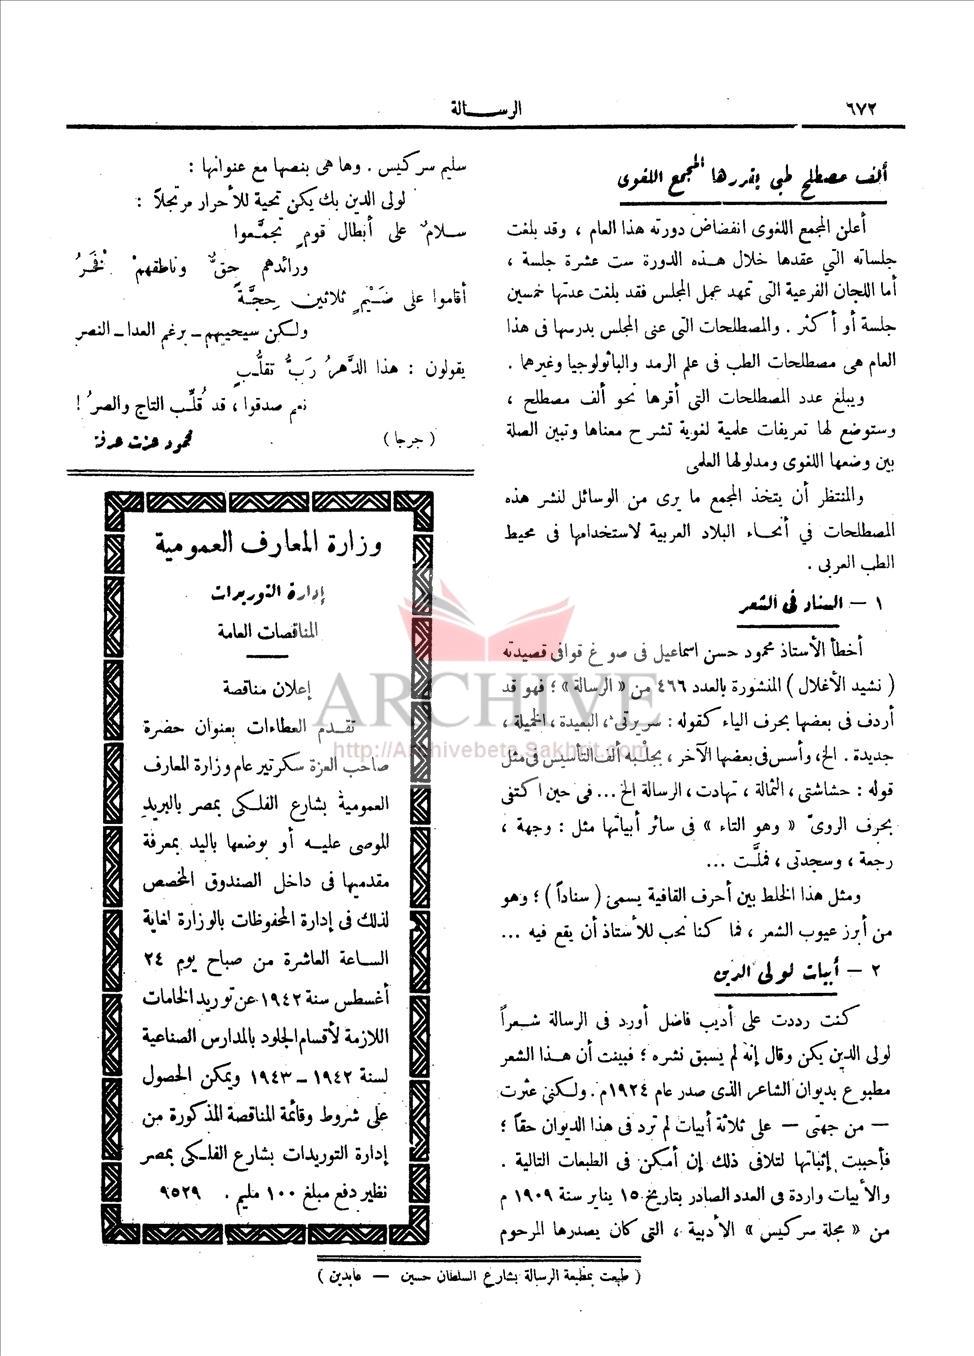 ٦٧٢
الرســالة
ألف مصطلح طبى يقررها المجمع اللغوى
أعلن المجمع اللغوى انفضاض دورته هذا العام ، وقد بلغت
جلساته التي عقدها خلال هــذه الدورة ست عشرة جلسة ،
أما اللجان الفرعية التى تمهد عمل المجلس فقد بلغت عدتها خمسين
جلسة أو أكثر . والمصطلحات التى عنى المجلس بدرسها فى هذا
العام هى مصطلحات الطب فى علم الرمد والباثولوجيا وغيرهما .
ويبلغ عدد المصطلحات التى أقرها نحو ألف مصطلح ،
وستوضع لها تعريفات علمية لغوية تشرح معناها وتبين الصلة
بين وضعها اللغوى ومدلولها العلمى
والمنتظر أن يتخذ المجمع ما يرى من الوسائل لنشر هذه
المصطلحات في أنحاء البلاد العربية لاستخدامها فى محيط
الطب العربى .
١ — السناد فى الشعر
أخطأ الأستاذ محمود حسن اسماعيل فى صوغ قوافى قصيدته
( نشيد الأغلال ) المنشورة بالعدد ٤٦٦ من « الرسالة » ؛ فهو قد
أردف فى بعضها بحرف الياء كقوله : سريرتى ، البعيدة ، الخميلة ،
جديدة . الخ، وأسس فى بعضها الآخر ، بجلبه ألف التأسيس فى مثل
قوله : حشاشتى ، الثمالة ، تهادت ، الرسالة الخ... فى حين اكتفى
بحرف الروىّ « وهو التاء » فى سائر أبياتها مثل : وجهة ،
رجعة ، وسجدتى ، فملَّت ...
ومثل هذا الخلط بين أحرف القافية يسمى ( سناداً ) ؛ وهو
من أبرز عيوب الشعر ، فما كنا نحب للأستاذ أن يقع فيه ...
٢ — أبيات لولى الدين
كنت رددت على أديب فاضل أورد فى الرسالة شــعراً
لولى الدين يكن وقال إنه لم يسبق نشره ؛ فبينت أن هــذا الشعر
مطبوع بديوان الشاعر الذى صدر عام ١٩٢٤م . ولكنى عثرت
— من جهتى — على ثلاثة أبيات لم ترد فى هذا الديوان حقاً ؛
فأحببت إثباتها لتلافى ذلك إن أمكن فى الطبعات التالية .
والأبيات واردة فى العدد الصادر بتاريخ ١٥ يناير سنة ١٩٠٩ م
من « مجلة سركيس » الأدبية ، التى كان يصدرها المرحوم
سليم سركيس . وها هى بنصها مع عنوانها :
لولى الدين بك يكن تحية للأحرار مرتجلاً :
سـلامٌ على أبطال قومٍ تجمَّعوا
ورائدهم حقٌّ وناطقهمْ فَخَرُ
أقاموا على ضَيْمٍ ثلاثين حِجةً
ولكن سيحييهم ــ برغم العدا ــ النصر
يقولون : هذا الدَّهرُ رَبُّ تقلُّبٍ
نعم صدقوا ، قد قُلِّب التاج والصرُ !
( جرجا )
محمود عزت عرفة
وزارة المعارف العمومية
إدارة التوريدات
المناقصات العامة
إعلان مناقصة
تقــدم العطاءات بعنوان حضرة
صاحب العزة سكرتير عام وزارة المعارف
العمومية بشارع الفلكى بمصر بالبريد
الموصى عليــه أو بوضعها باليد بمعرفة
مقدميها فى داخل الصندوق المخصص
لذلك فى إدارة المحفوظات بالوزارة لغاية
الساعة العاشرة من صباح يوم ٢٤
أغسطس سنة ١٩٤٢ عن توريد الخامات
اللازمة لأقسام الجلود بالمدارس الصناعية
لسنة ١٩٤٢ ــ ١٩٤٣ ويمكن الحصول
على شروط وقائمة المناقصة المذكورة من
إدارة التوريدات بشارع الفلكى بمصر
نظير دفع مبلغ ١٠٠ مليم . ٩٥٢٩
( طبعت بمطبعة الرسالة بشارع السلطان حسين — عابدين )
ARCHIVE
http://Archivebeta.Sakhrit.com